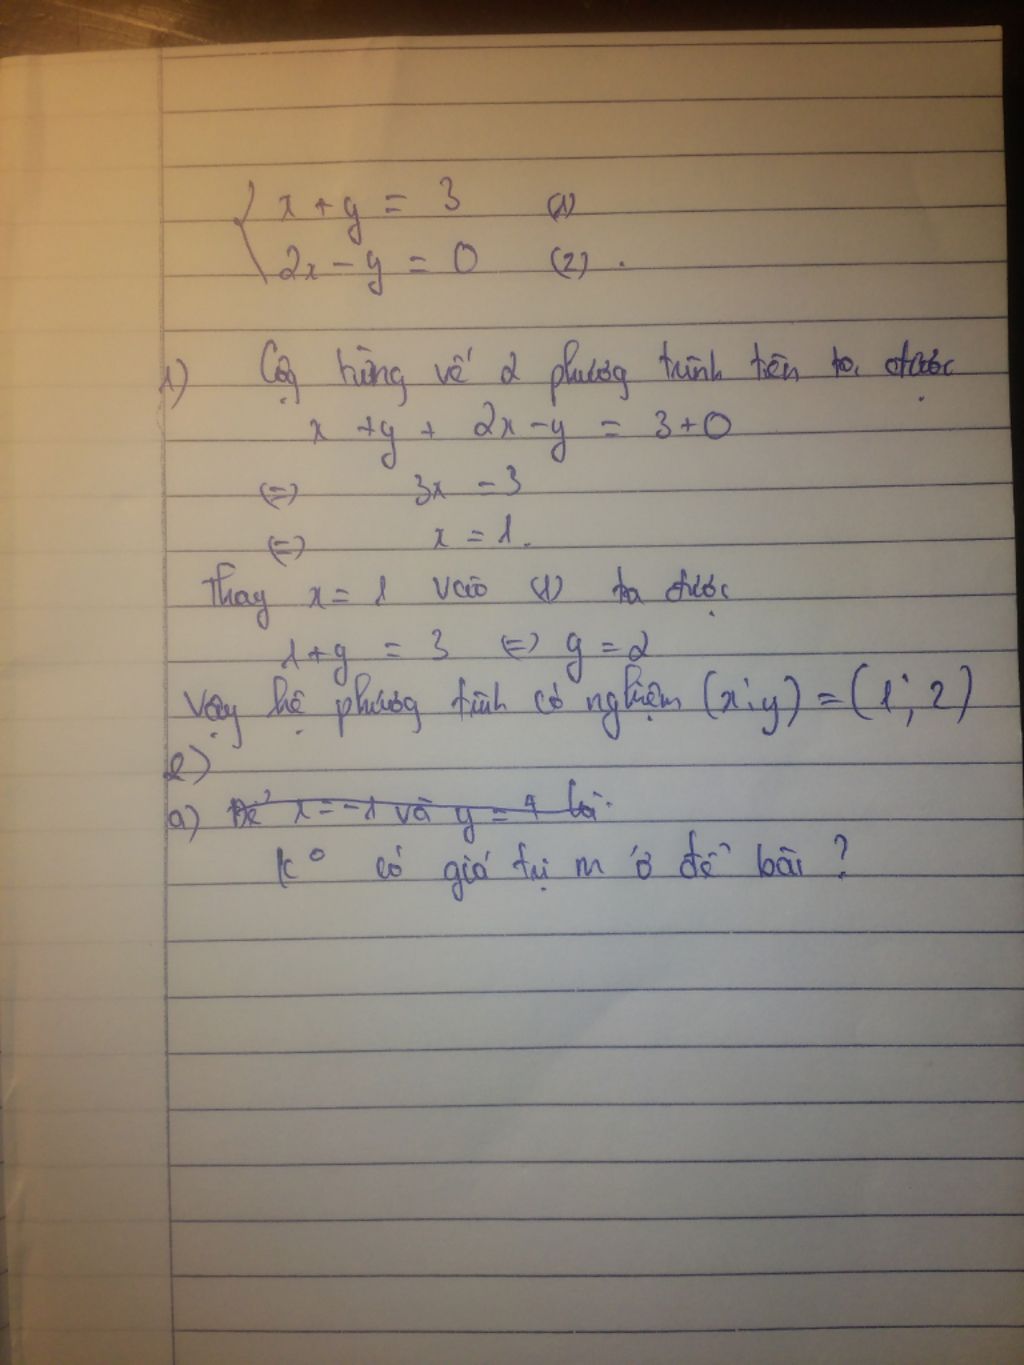 x + y = 3 (1)
2x - y = 0 (2).
1) Cộg từng vế 2 phương trình trên ta được
x + y + 2x - y = 3 + 0
(=) 3x = 3
(=) x = 1.
Thay x = 1 vào (1) ta được
1 + y = 3 (=) y = 2
Vậy hệ phương trình có nghiệm (x; y) = (1; 2)
2)
a) Để x = -1 và y = 4
K° có giá trị m ở đề bài ?